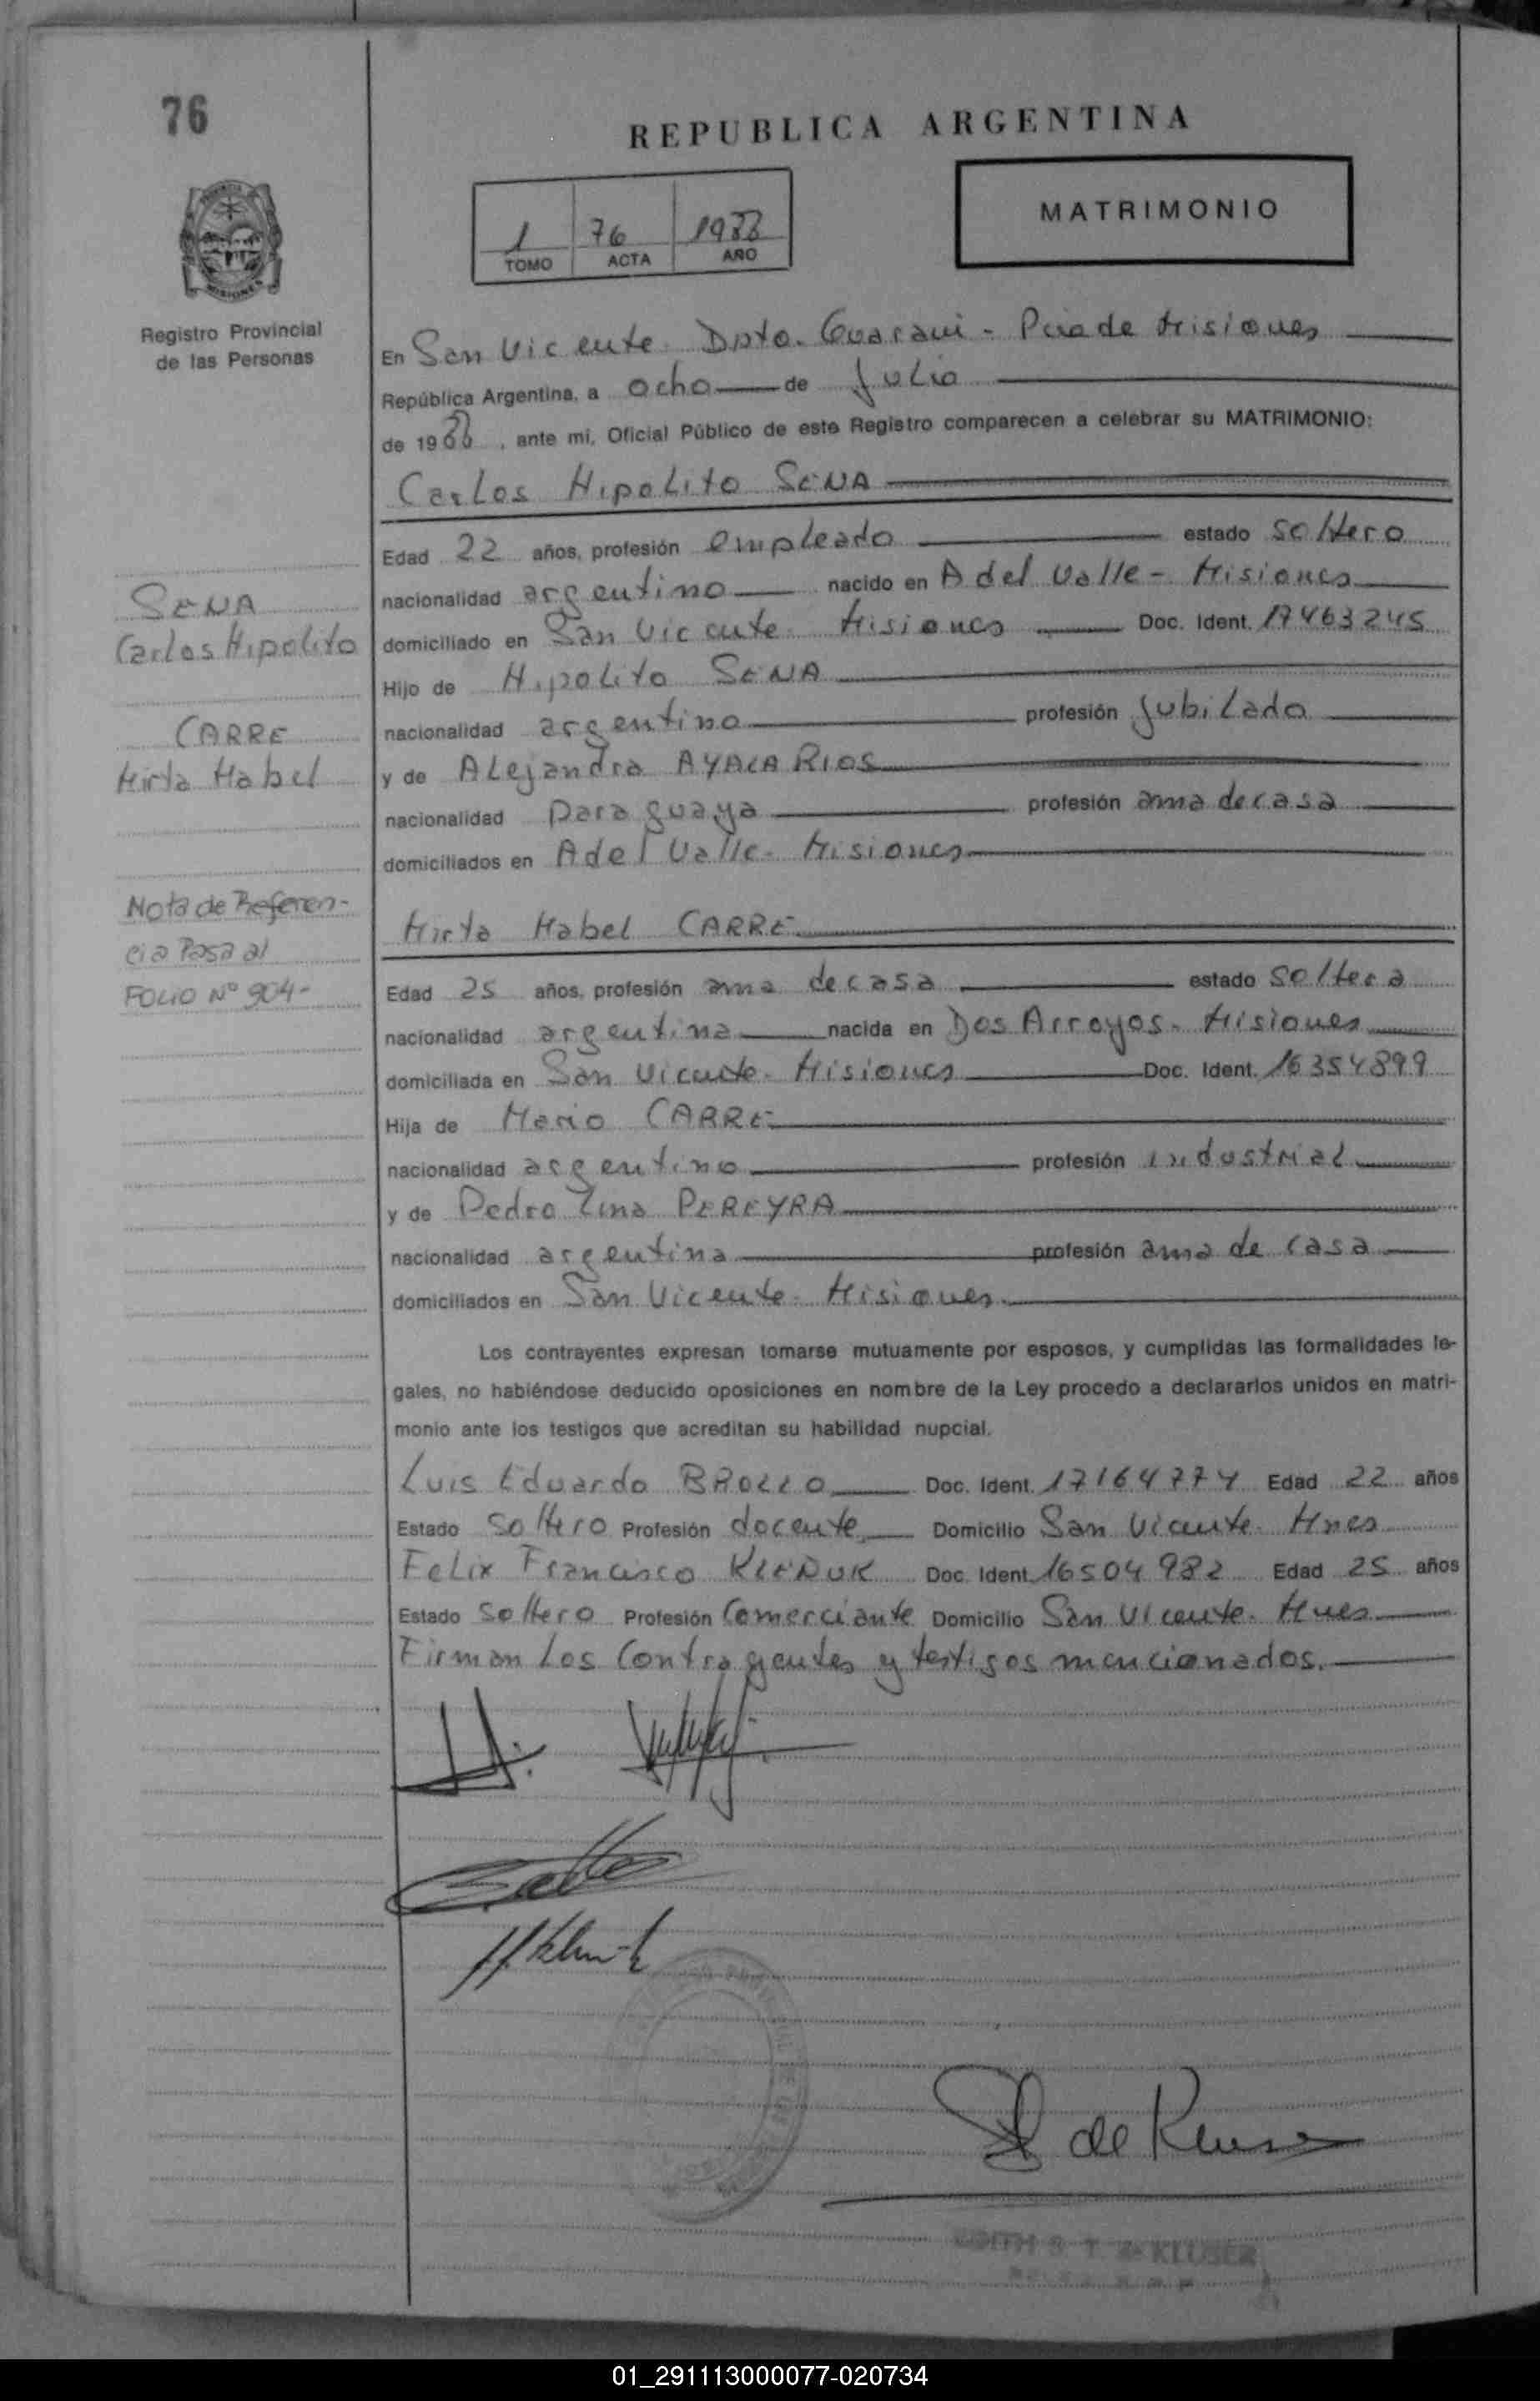 76
REPUBLICA ARGENTINA
MATRIMONIO
1 76 1988
TOMO ACTA AÑO
MISIONES
Registro Provincial
de las Personas
En San Vicente. Dpto. Guarani - Pcia de Misiones
República Argentina, a ocho de Julio
de 1988, ante mi, Oficial Público de este Registro comparecen a celebrar su MATRIMONIO:
Carlos Hipolito SENA
Edad 22 años, profesión empleado estado soltero
nacionalidad argentino nacido en A del Valle - Misiones
domiciliado en San Vicente. Misiones Doc. Ident. 17463245
Hijo de Hipolito SENA
nacionalidad argentino profesión Jubilado
y de Alejandra AYALA RIOS
nacionalidad paraguaya profesión ama de casa
domiciliados en A del Valle - Misiones
SENA
Carlos Hipolito
CARRE
Mirta Mabel
Nota de Referen-
cia Pasa al
FOLIO Nº 904-
Mirta Mabel CARRE
Edad 25 años, profesión ama de casa estado soltera
nacionalidad argentina nacida en Dos Arroyos - Misiones
domiciliada en San Vicente - Misiones Doc. Ident. 16354899
Hija de Mario CARRE
nacionalidad argentino profesión industrial
y de Pedro Lina PEREYRA
nacionalidad argentina profesión ama de casa
domiciliados en San Vicente - Misiones
Los contrayentes expresan tomarse mutuamente por esposos, y cumplidas las formalidades le-
gales, no habiéndose deducido oposiciones en nombre de la Ley procedo a declararlos unidos en matri-
monio ante los testigos que acreditan su habilidad nupcial.
Luis Eduardo BROLLO Doc. Ident. 17164774 Edad 22 años
Estado soltero Profesión docente Domicilio San Vicente - Mnes
Felix Francisco KLEÑUK Doc. Ident. 16504982 Edad 25 años
Estado soltero Profesión Comerciante Domicilio San Vicente - Mnes
Firman los Contrayentes y testigos mencionados.
de Kluser
EDITH S. T. de KLUSER
01_291113000077-020734